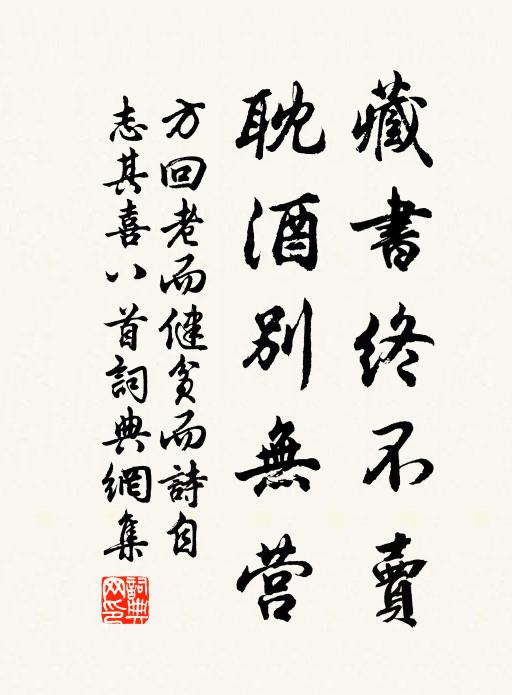 藏書終不賣
耽酒別無营
方回老而健貧而詩自
志其喜八首詞典網集
詞典
网印